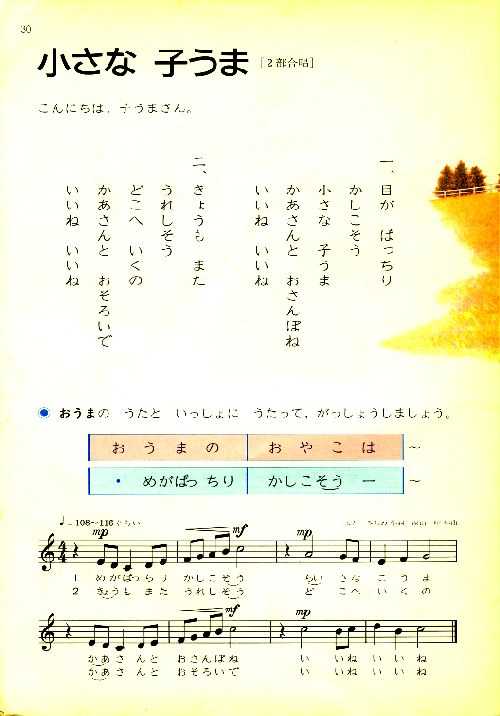 30
小さな 子うま [2部合唱]
こんにちは、子うまさん。
一、目が ぱっちり
かしこそう
小さな 子うま
かあさんと おさんぽね
いいね いいね
二、きょうも また
うれしそう
どこへ いくの
かあさんと おそろいで
いいね いいね
おうまの うたと いっしょに うたって、がっしょうしましょう。
お う ま の お や こ は ～
・ めがぱっ ちり かしこそう ー ～
♩=108～116ぐらい
mp mf mp
4/4
1 めがぱっちり かしこそう ちい さな こうま
2 きょうも また うれしそう ど こへ いくの
mf mp
かあさんと おさんぽね い いね いいね
かあさんと おそろいで い いね いいね